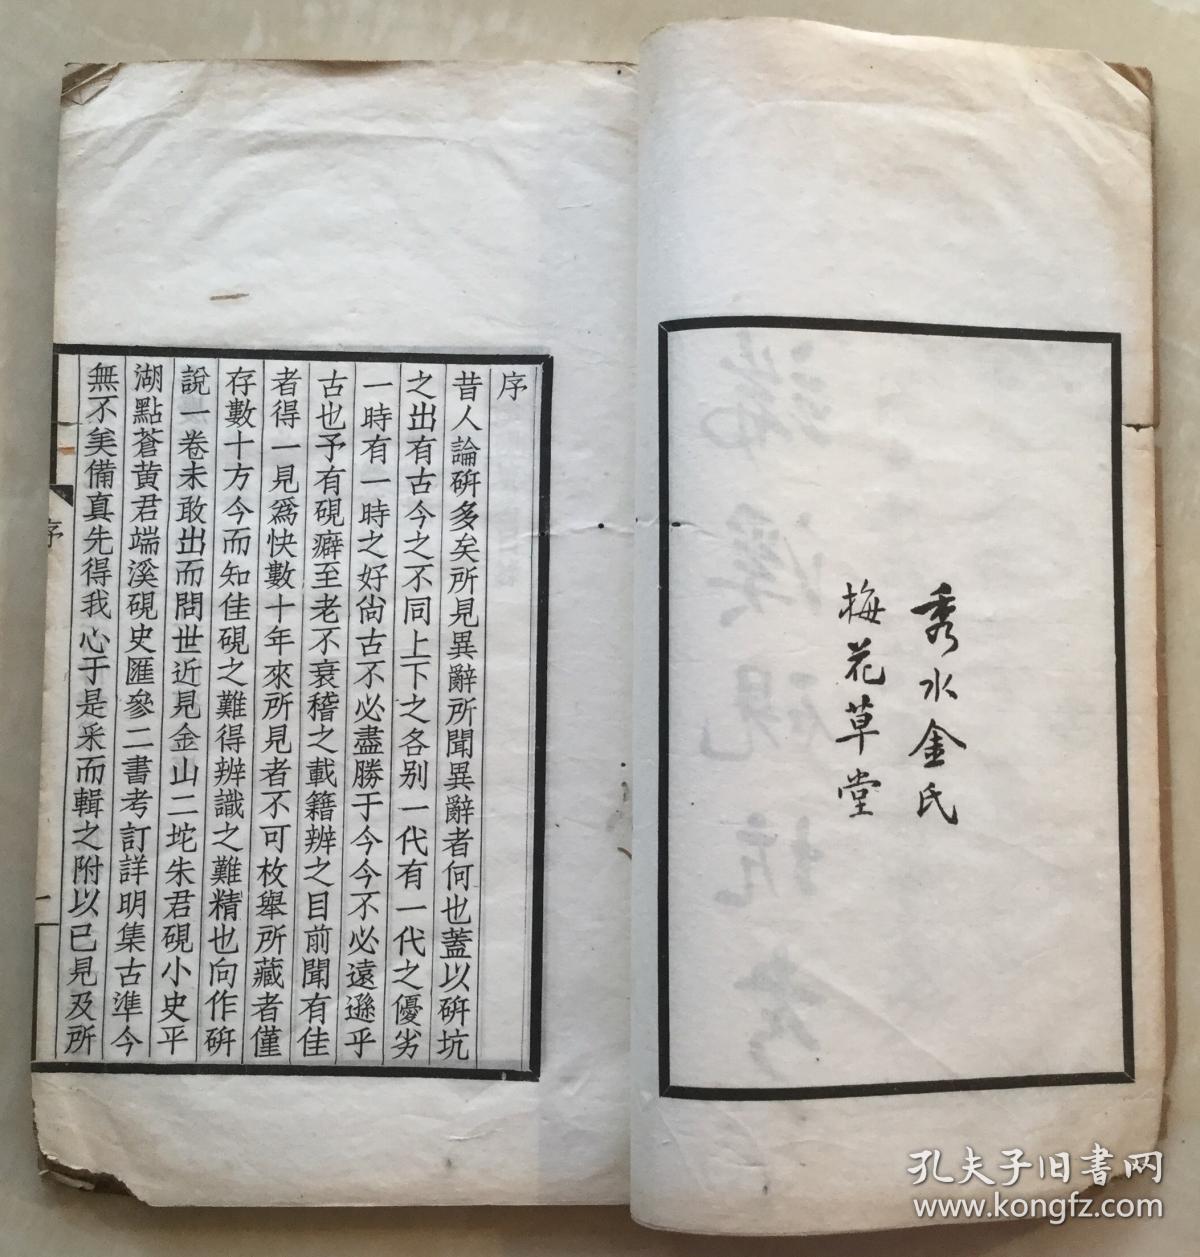 秀水金氏
梅花草堂
序
昔人論硏多矣所見異辭所聞異辭者何也蓋以硏坑
之出有古今之不同上下之各别一代有一代之優劣
一時有一時之好尙古不必盡勝于今今不必遠遜乎
古也予有硯癖至老不衰稽之載籍辨之目前聞有佳
者得一見爲快數十年來所見者不可枚舉所藏者僅
存數十方今而知佳硯之難得辨識之難精也向作硏
說一卷未敢出而問世近見金山二坨朱君硯小史平
湖點蒼黄君端溪硯史匯參二書考訂詳明集古準今
無不矣備真先得我心于是采而輯之附以已見及所
序
一
孔夫子旧書网
www.kongfz.com